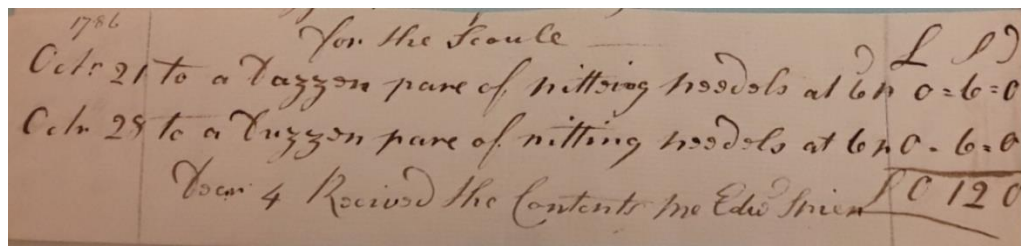 1786
for the Scoule £ s d
Octr 21 to a Dazzen pare of nitteing needels at 6d p 0 = 6 = 0
Octr 28 to a Duzzen pare of nitting needels at 6 p 0 = 6 = 0
Decr 4 Recived the Contents pr me Edwd £ 0 12 0